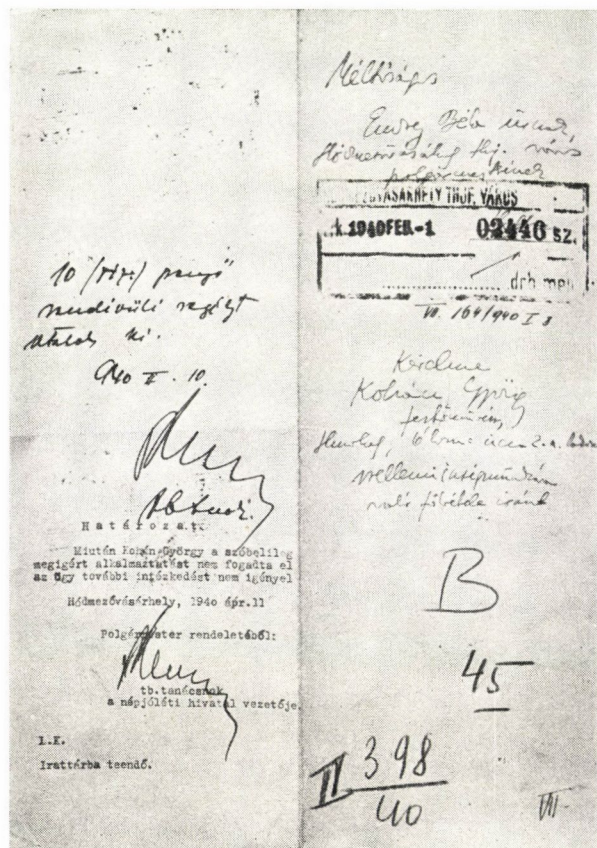 10 (tiz) pengő
rendkivüli segélyt
utalok ki.
940 II. 10.
Határozat.
Miután Kohán György a szóbelileg
megigért alkalmaztatást nem fogadta el
az ügy további intézkedést nem igényel
Hódmezővásárhely, 1940 ápr.11
Polgármester rendeletéből:
tb.tanácsnok
a népjóléti hivatal vezetője.
1.K.
Irattárba teendő.
Méltóságos
Endrey Béla úrnak,
Hódmezővásárhely thj. város
polgármesterének
VÁSÁRHELY THJF. VÁROS
1940 FEB.-1 02446 sz.
drb mell
VII. 164/940 I
Kérelme
György
festőművész
Hmvhely,
való fölvétele iránt
B
45
II 398
40
VII